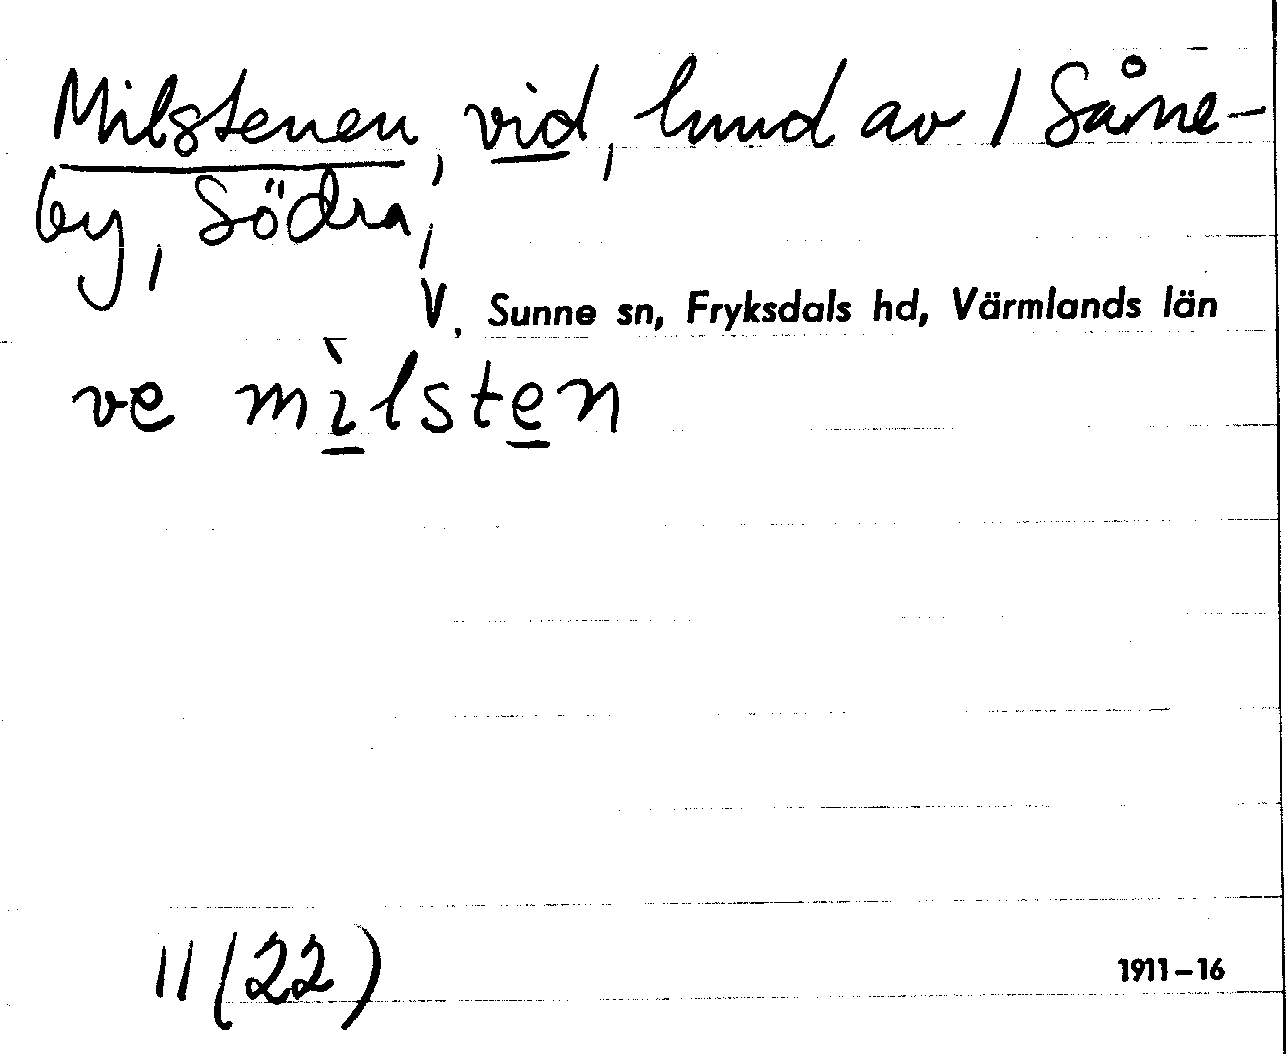 Milstenen, vid, lund av 1 Såne-
by, Södra,
V. Sunne sn, Fryksdals hd, Värmlands län
ve mìlsten
11 (22)
1911-16